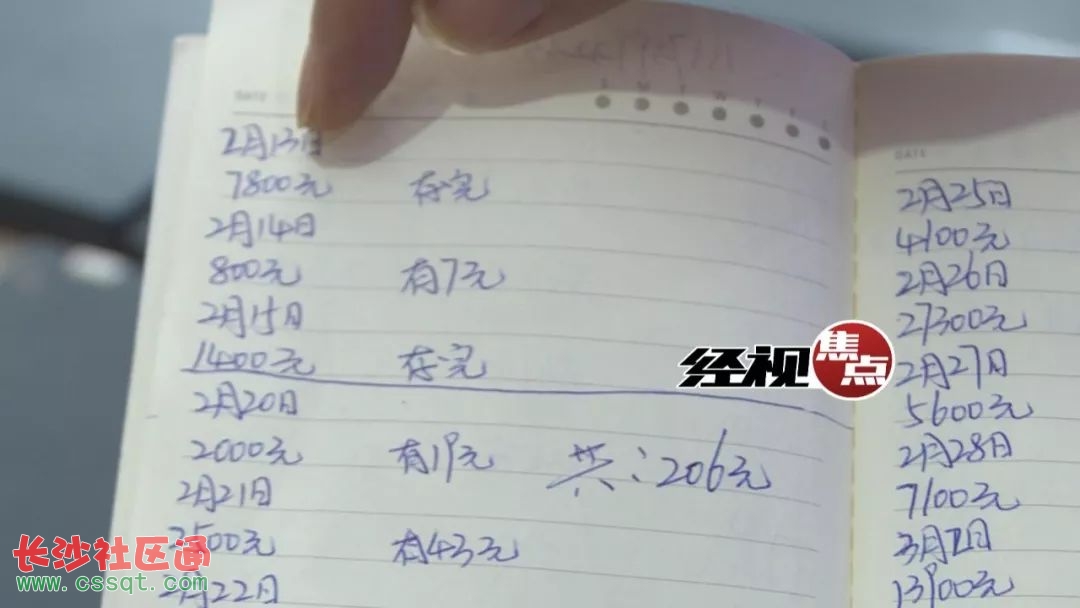 DATE
S M T W T F S
2月13日
7800元 存完
2月14日
800元 有7元
2月15日
1400元 存完
2月20日
2000元 有19元 共:206元
2月21日
3500元 有43元
2月22日
DATE
2月25日
4100元
2月26日
27300元
2月27日
5600元
2月28日
7100元
3月1日
13900元
经视焦点
长沙社区通
www.cssqt.com